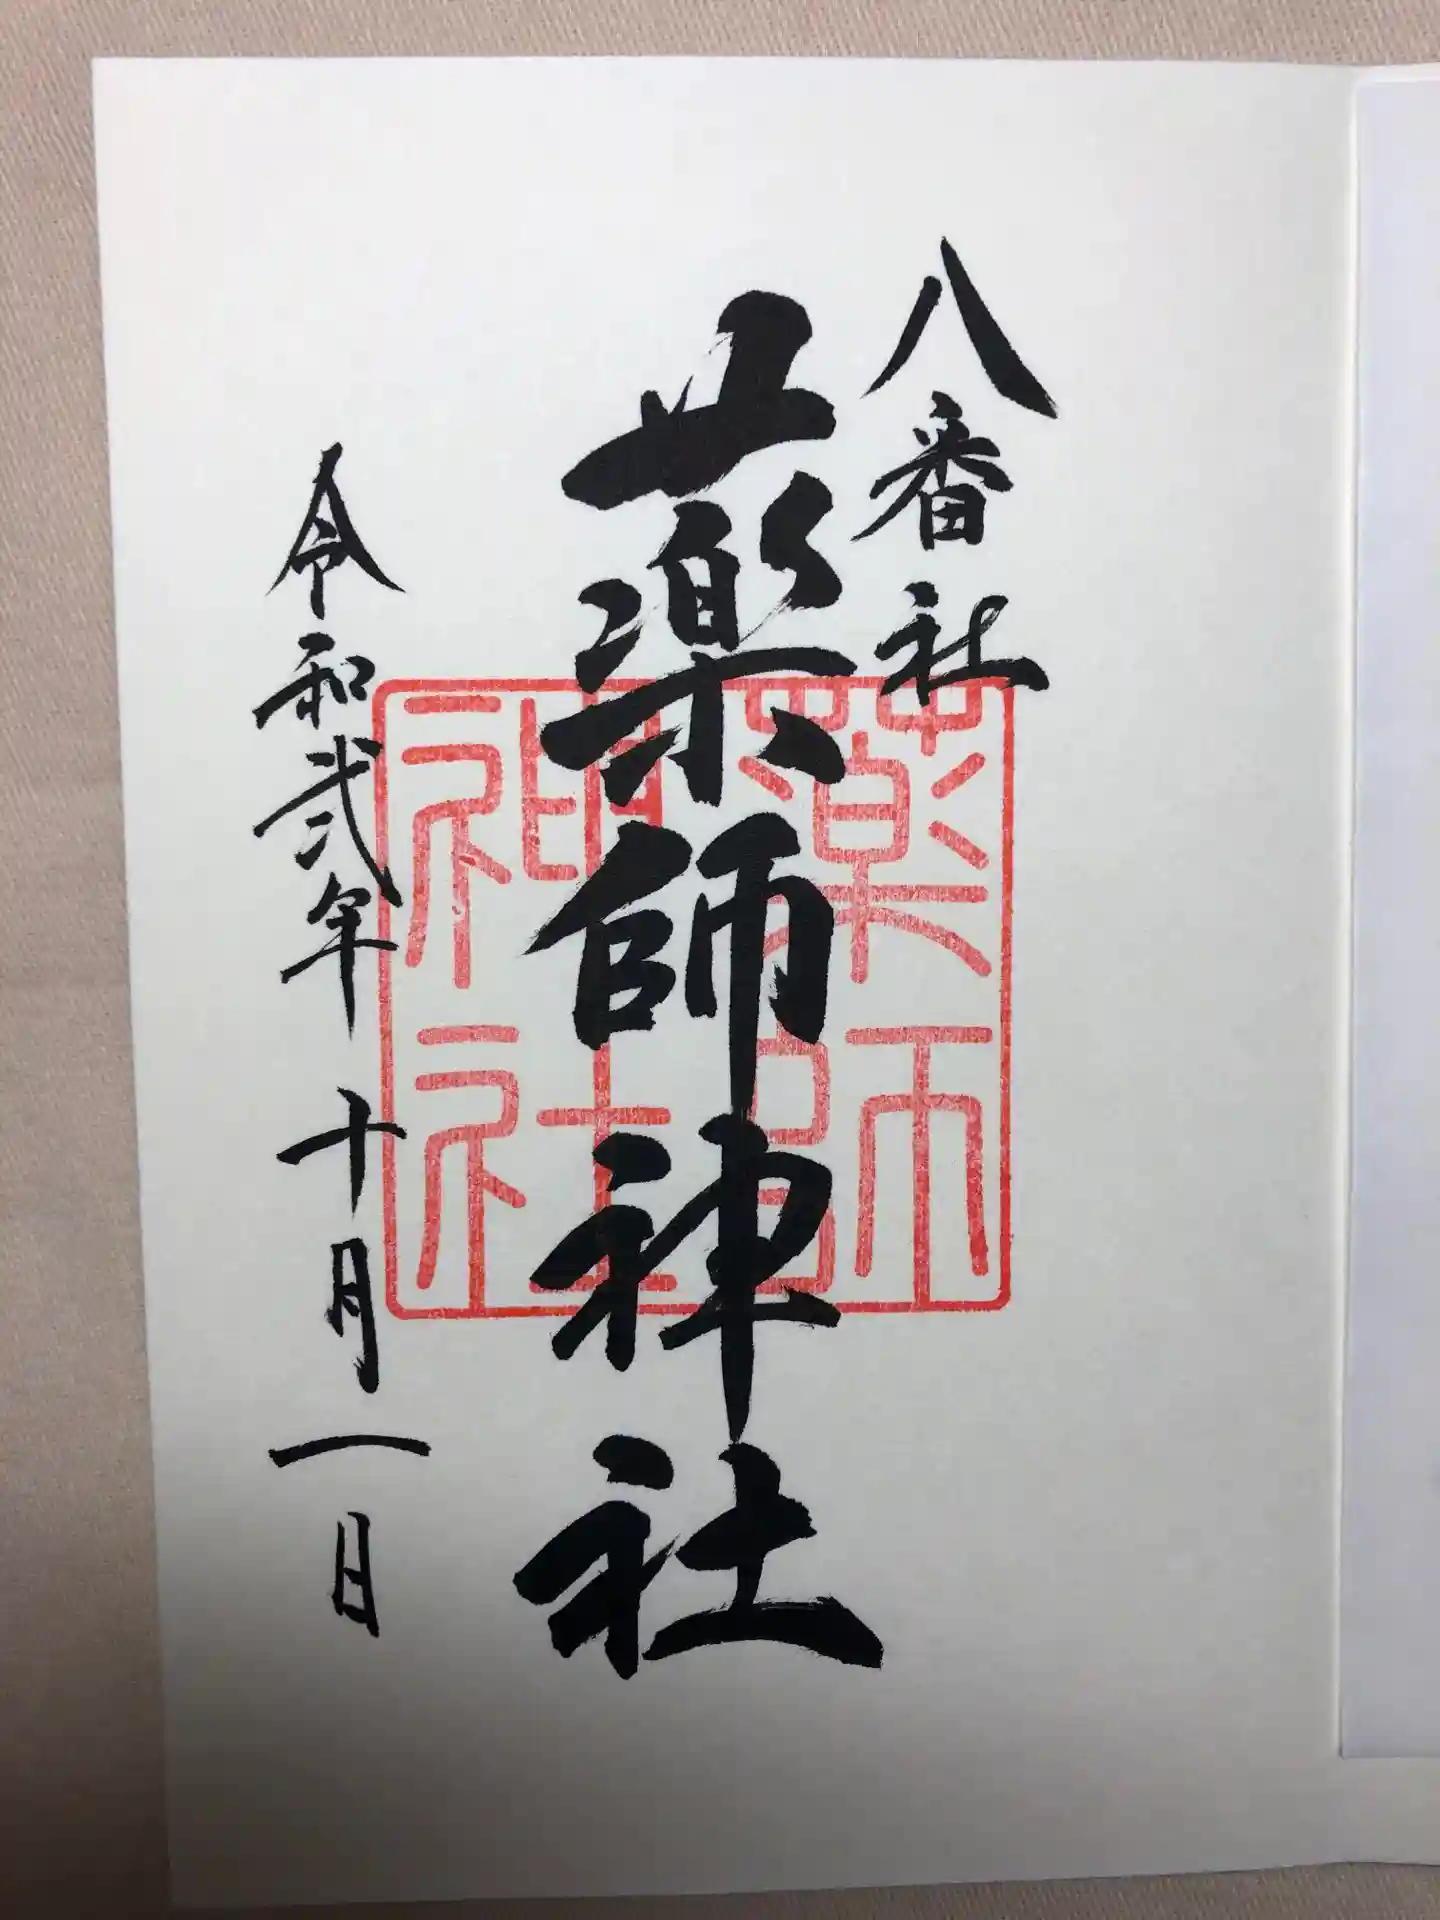 八番社
薬師神社
令和弐年 十月一日
薬師
神社